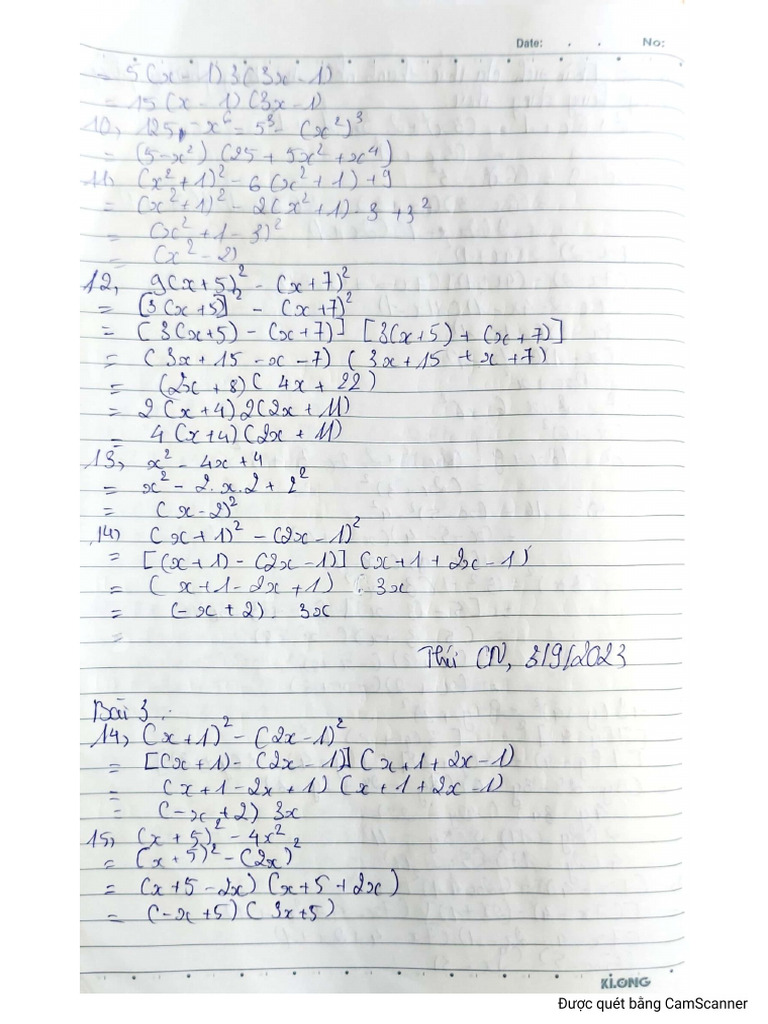 Date: . . No:
= 5(x - 1) 3(3x - 1)
= 15(x - 1)(3x - 1)
10, 125 - x⁶ = 5³ - (x²)³
= (5-x²)(25 + 5x² + x⁴)
11, (x² + 1)² - 6(x² + 1) + 9
= (x² + 1)² - 2(x² + 1) . 3 + 3²
= (x² + 1 - 3)²
= (x² - 2)
12, 9(x + 5)² - (x + 7)²
= [3(x + 5)]² - (x + 7)²
= [3(x+5) - (x + 7)] [3(x + 5) + (x + 7)]
= (3x + 15 - x - 7) (3x + 15 + x + 7)
= (2x + 8)(4x + 22)
= 2(x + 4) 2(2x + 11)
= 4(x + 4)(2x + 11)
13, x² - 4x + 4
= x² - 2. x. 2 + 2²
= (x - 2)²
14) (x + 1)² - (2x - 1)²
= [(x + 1) - (2x - 1)] (x + 1 + 2x - 1)
= (x + 1 - 2x + 1) . 3x
= (-x + 2) . 3x
=
Thứ CN, 3/9/2023
Bài 3 :
14, (x + 1)² - (2x - 1)²
= [(x + 1) - (2x - 1)] (x + 1 + 2x - 1)
= (x + 1 - 2x + 1) (x + 1 + 2x - 1)
= (-x + 2) 3x
15, (x + 5)² - 4x²
= (x + 5)² - (2x)²
= (x + 5 - 2x) (x + 5 + 2x)
= (-x + 5) (3x + 5)
KLONG
Được quét bằng CamScanner